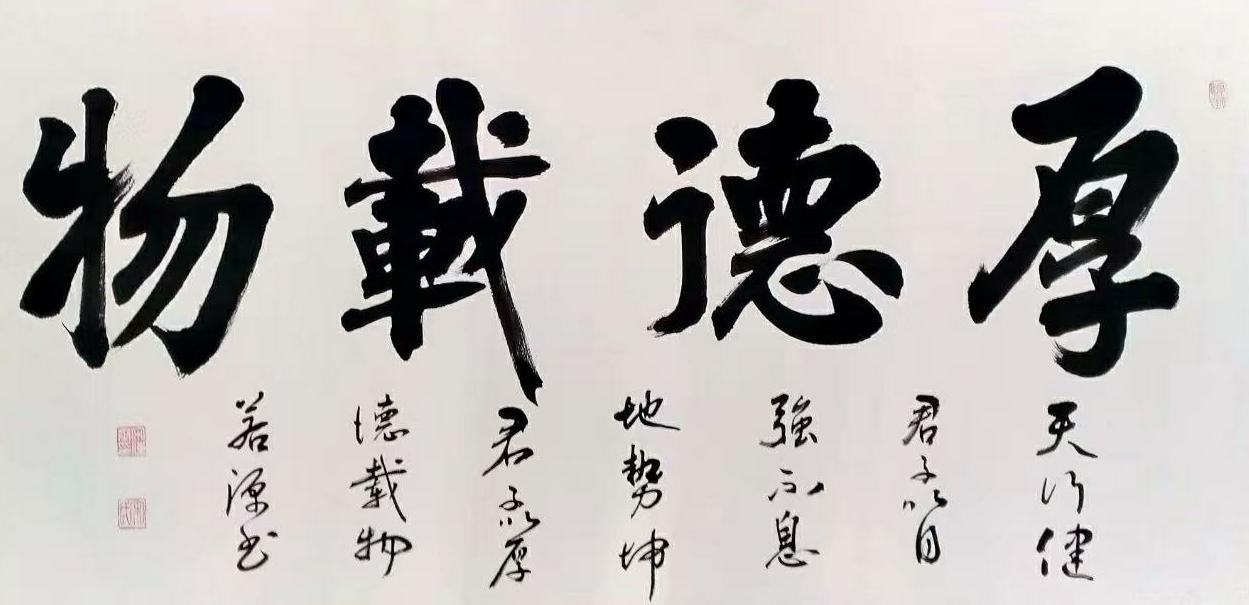 厚德載物
天行健
君子以自
強不息
地勢坤
君子以厚
德載物
若源书